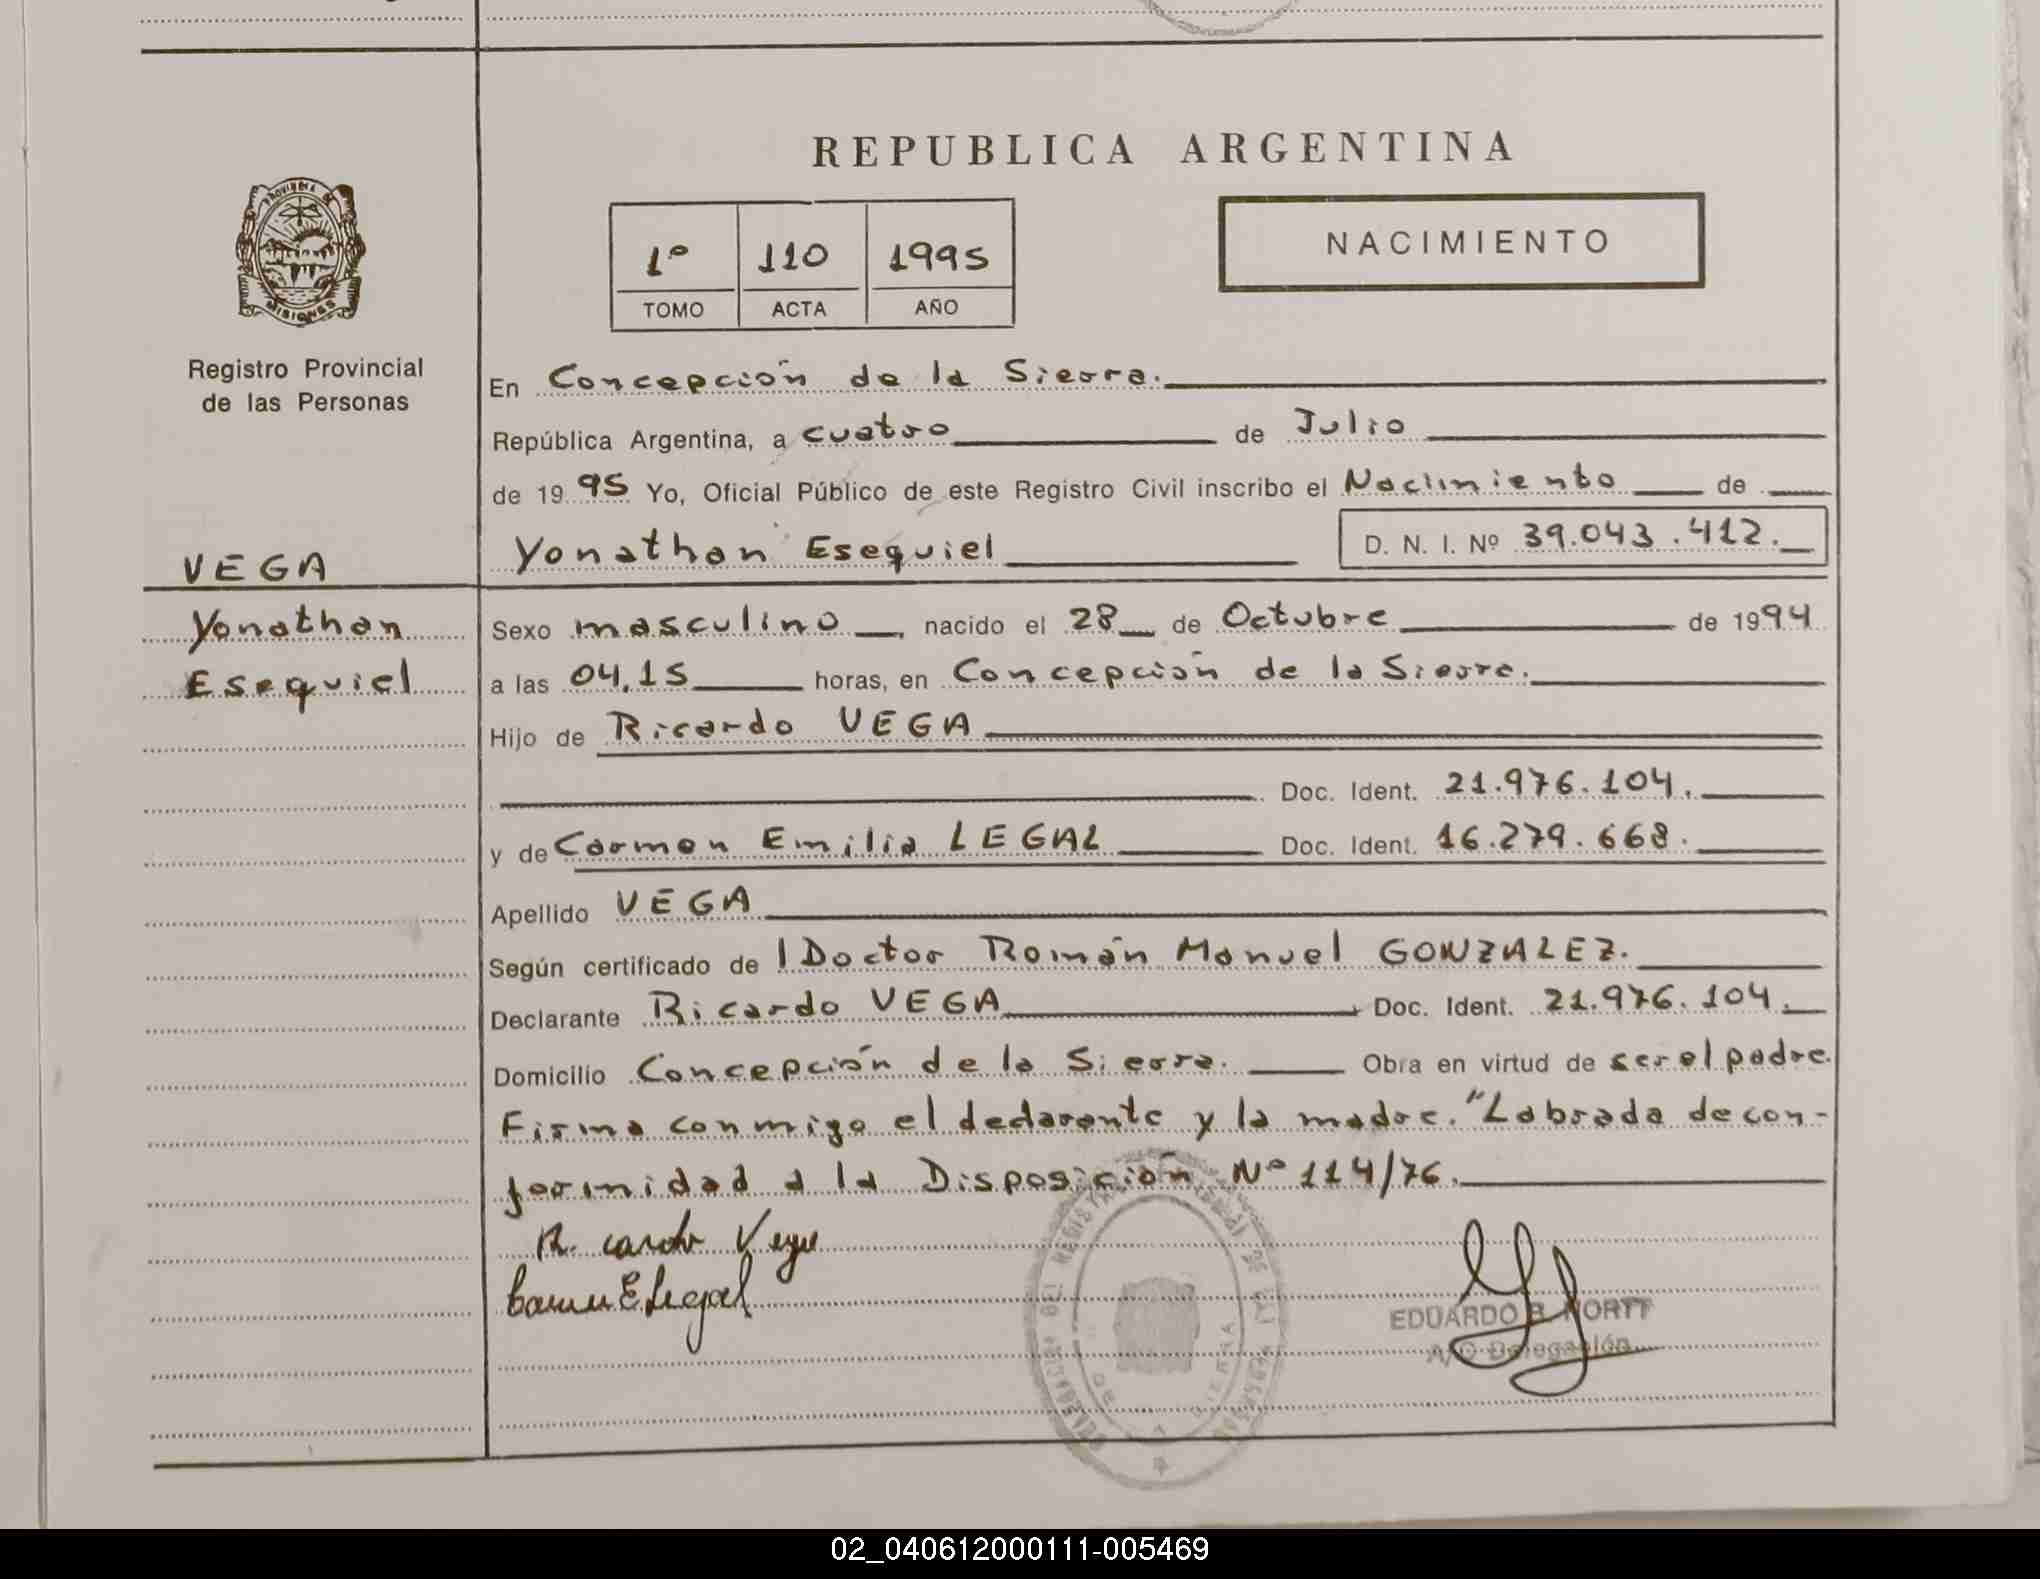 REPUBLICA ARGENTINA
PROVINCIA DE
MISIONES
1º 110 1995
TOMO ACTA AÑO
NACIMIENTO
Registro Provincial
de las Personas
En Concepción de la Sierra.
República Argentina, a cuatro de Julio
de 1995 Yo, Oficial Público de este Registro Civil inscribo el Nacimiento de
Yonathan Esequiel D. N. I. Nº 39.043.412.
VEGA
Yonathan
Esequiel
Sexo masculino, nacido el 28 de Octubre de 1994
a las 04,15 horas, en Concepción de la Sierra.
Hijo de Ricardo VEGA
Doc. Ident. 21.976.104.
y de Carmen Emilia LEGAL Doc. Ident. 16.279.668.
Apellido VEGA
Según certificado de l Doctor Román Manuel GONZALEZ.
Declarante Ricardo VEGA Doc. Ident. 21.976.104.
Domicilio Concepción de la Sierra. Obra en virtud de ser el padre.
Firma conmigo el declarante y la madre. "Labrada de con-
formidad a la Disposición Nº 114/76.
Ricardo Vega
Carmen E Legal
EDUARDO R.
A/C Delegación
02_040612000111-005469